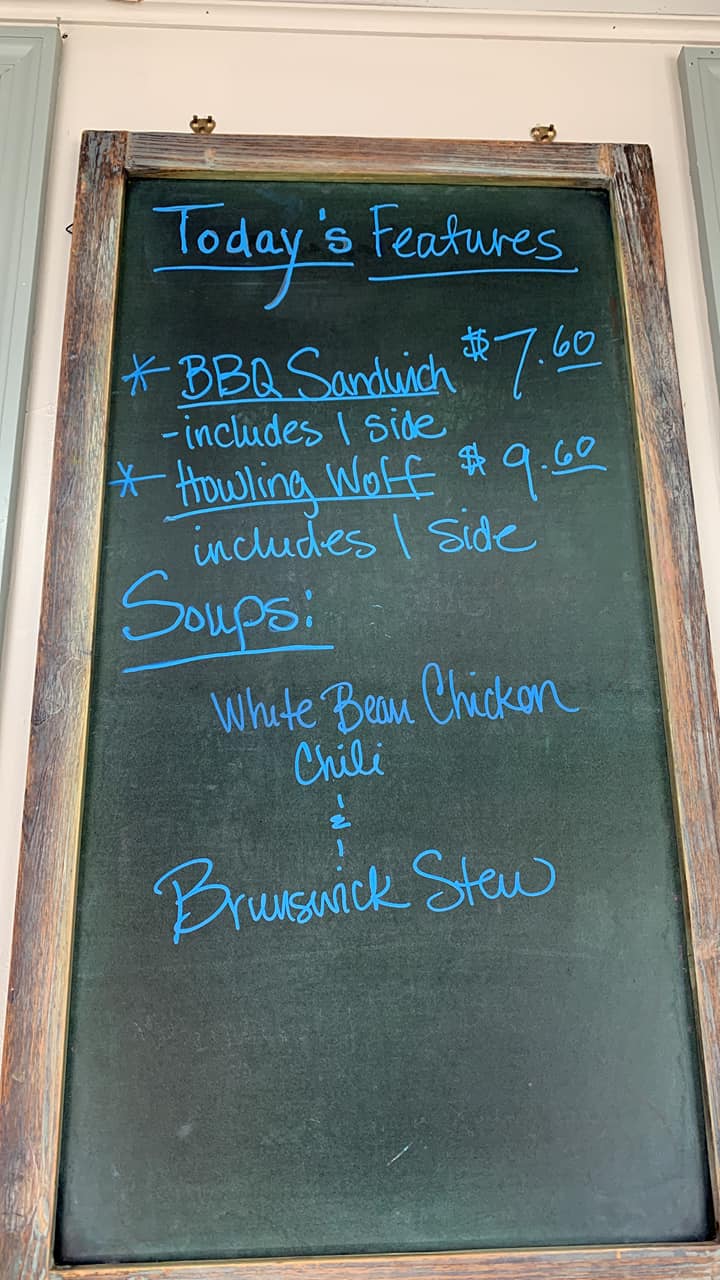 Today's Features
* BBQ Sandwich $7.60
-includes 1 side
* Howling Wolf $9.60
includes 1 side
Soups:
White Bean Chicken
Chili
&
Brunswick Stew